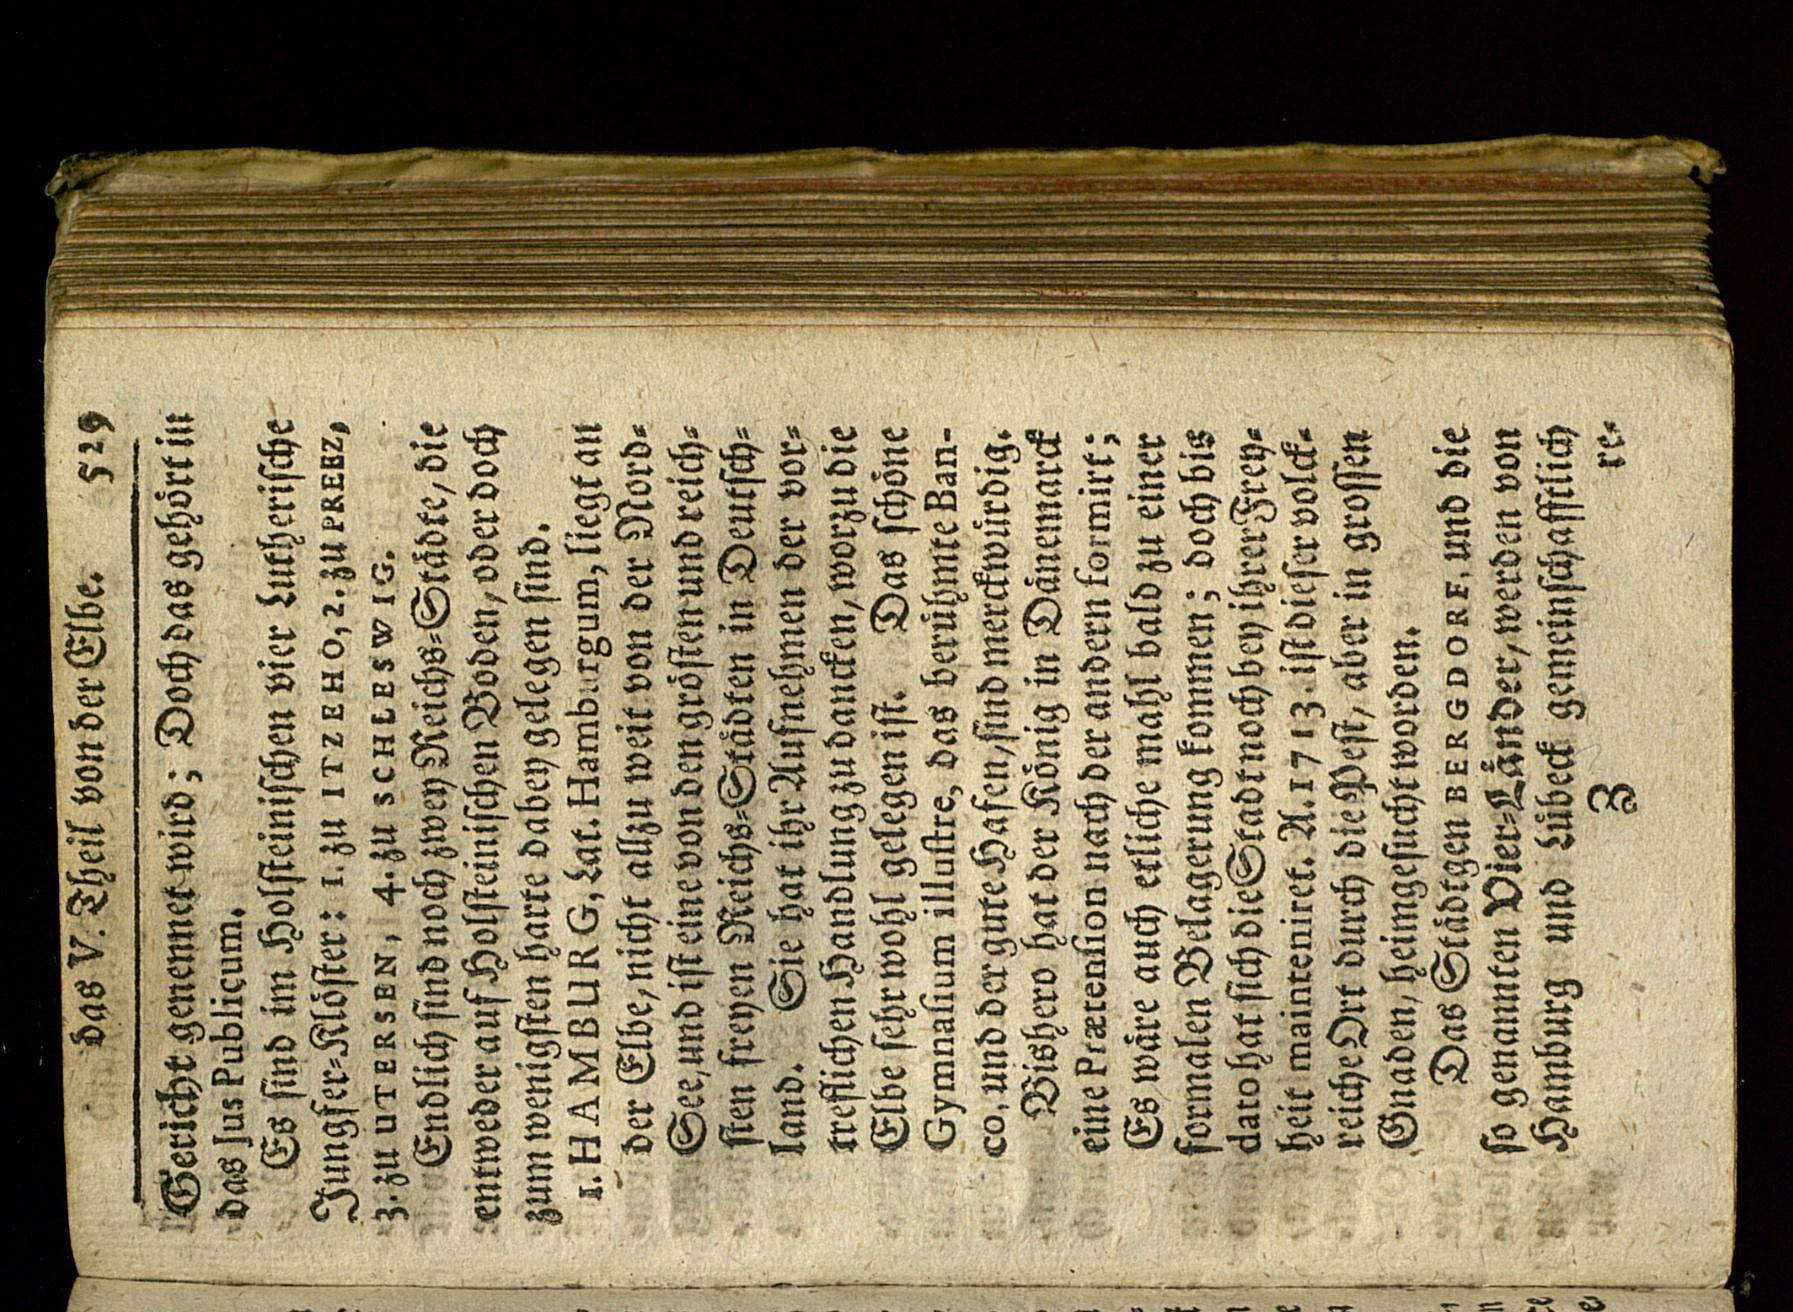 das V. Theil von der Elbe. 529
Gericht genennet wird; Doch das gehört in
das Jus Publicum.
Es sind im Holsteinischen vier Lutherische
Jungfer-Klöster: 1. zu ITZEHO, 2. zu PREEZ,
3. zu UTERSEN, 4. zu SCHLESWIG.
Endlich sind noch zwey Reichs-Städte, die
entweder auf Holsteinischen Boden, oder doch
zum wenigsten harte dabey gelegen sind.
1. HAMBURG, Lat. Hamburgum, liegt an
der Elbe, nicht allzu weit von der Nord-
See, und ist eine von den grösten und reich-
sten freyen Reichs-Städten in Deutsch-
land. Sie hat ihr Aufnehmen der vor-
treflichen Handlung zu dancken, worzu die
Elbe sehr wohl gelegen ist. Das schöne
Gymnasium illustre, das berühmte Ban-
co, und der gute Hafen, sind merckwürdig.
Bishero hat der König in Dänemarck
eine Prætension nach der andern formirt;
Es wäre auch etliche mahl bald zu einer
formalen Belagerung kommen; doch bis
dato hat sich die Stadt noch bey ihrer Frey-
heit mainteniret. A. 1713. ist dieser volck-
reiche Ort durch die Pest, aber in grossen
Gnaden, heimgesucht worden.
Das Städtgen BERGDORF, und die
so genannten Vier-Länder, werden von
Hamburg und Lübeck gemeinschafftlich
Z re-